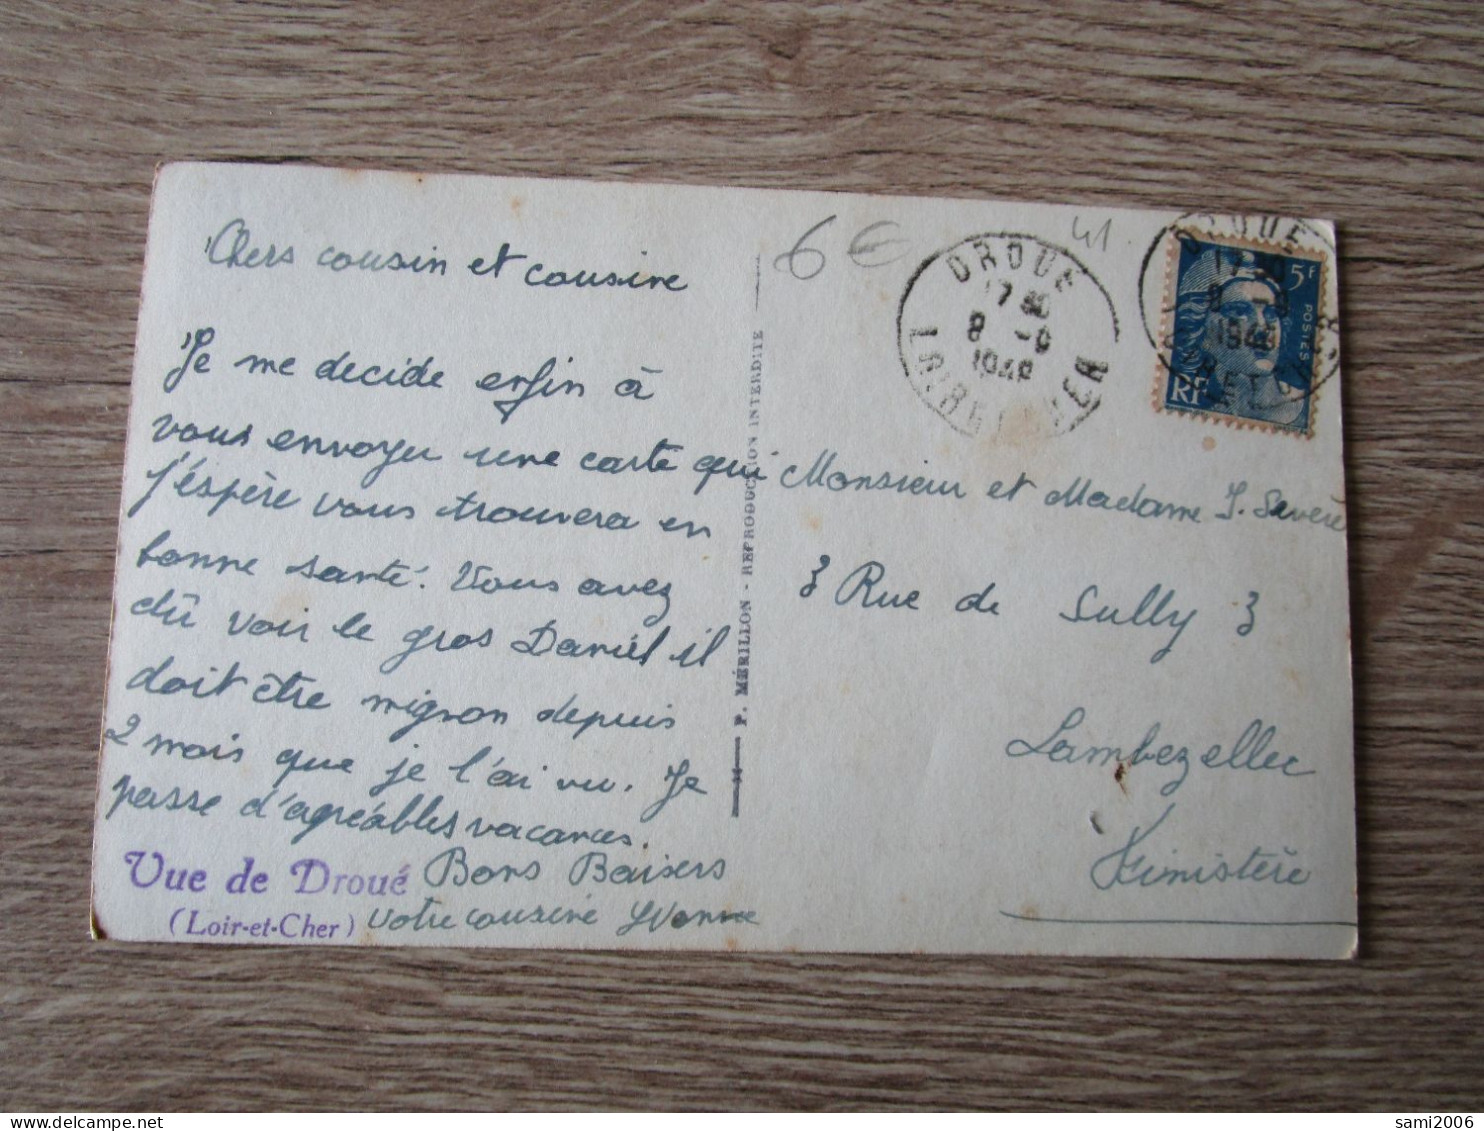 Chers cousin et cousine
Je me decide enfin à
vous envoyer une carte qui
j'éspère vous trouvera en
bonne santé. Vous avez
dû voir le gros Daniel il
doit être mignon depuis
2 mois que je l'ai vu. Je
passe d'agréables vacances
Bons Baisers
votre cousine Yvonne
Vue de Droué
(Loir-et-Cher)
P. MÉRILLON - REPRODUCTION INTERDITE
6€
41
DROUE
17
8 -9
1948
LOIR ET CHER
5F
POSTES
RF
Monsieur et Madame J. Sévère
3 Rue de Sully 3
Lambezellec
Finistère
sami2006